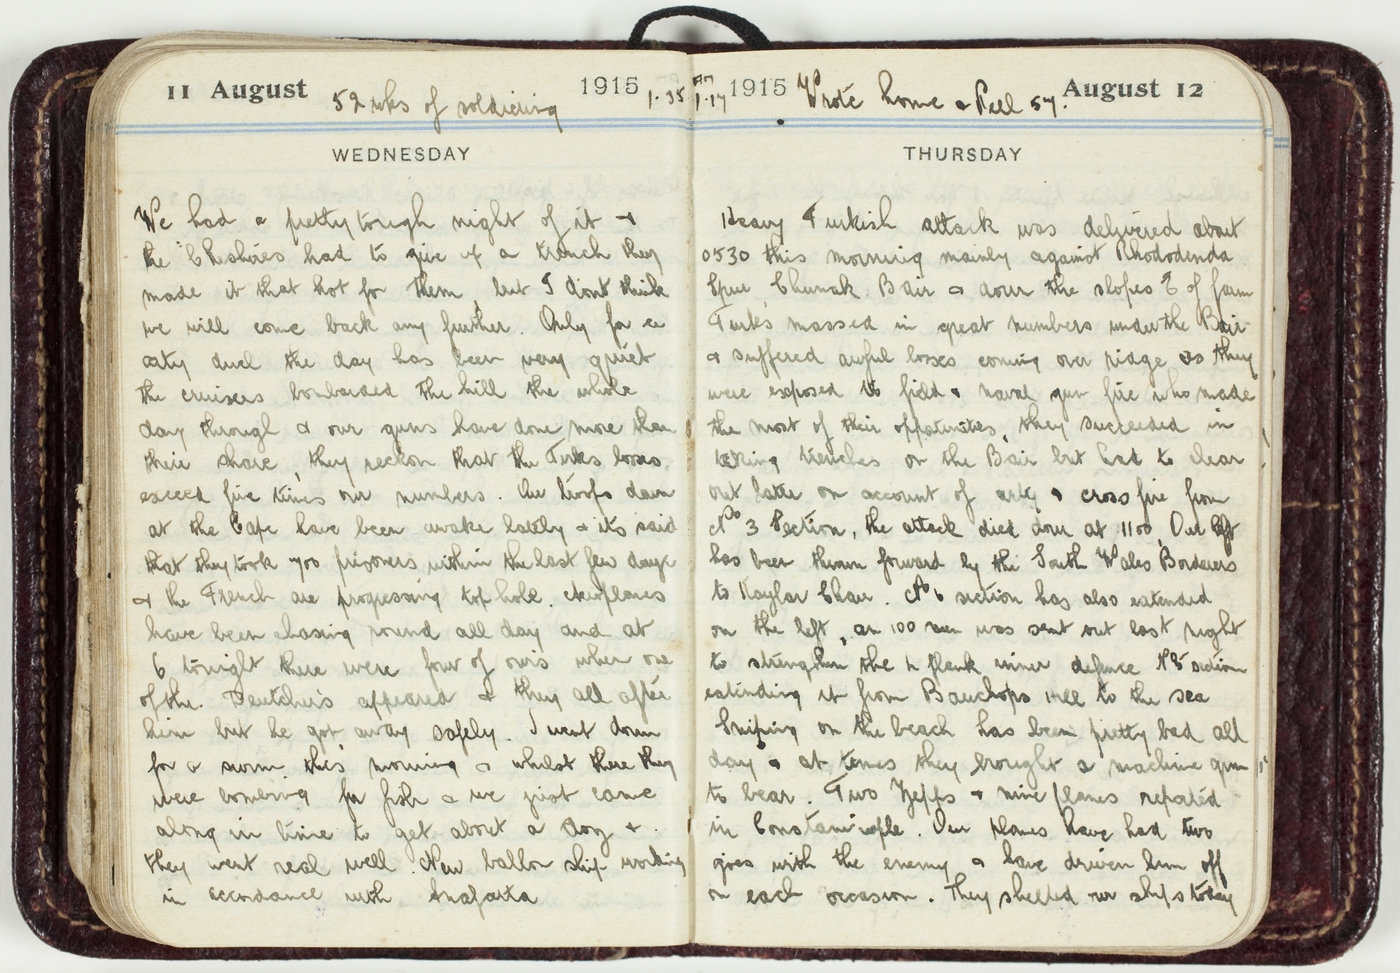 11 August 1915
52 wks of soldiering 1.35
WEDNESDAY
We had a pretty tough night of it &
the Cheshires had to give up a trench they
made it that hot for them, but I dont think
we will come back any further. Only for a
arty duel the day has been very quiet
the cruisers bombarded the hill the whole
day through & our guns have done more than
their share, they reckon that the Turks losses
exceed five times our numbers. Our troops down
at the Cape have been awake lately & its said
that they took 700 prisoners within the last few days
& the French are progressing top hole. Aeroplanes
have been chasing round all day and at
6 tonight there were four of ours when one
of the Deutchers appeared & they all after
him but he got away safely. I went down
for a swim this morning & whilst there they
were bombing for fish & we just came
along in time to get about a doz &
they went real well. New ballon ship working
in accordance with Anafarta
1915 August 12
1.17 Wrote home & Peel 57.
THURSDAY
Heavy Turkish attack was delivered about
0530 this morning mainly against Rhododenda
Spur, Chunak Bair & down the slopes E of farm
Turks massed in great numbers under the Bair
& suffered awful losses coming over ridge as they
were exposed to field & naval gun fire who made
the most of their oppotunities, they succeeded in
taking trenches on the Bair but had to clear
out later on account of arty & cross fire from
No 3 Section, the attack died down at 1100. Our left
has been thrown forward by the South Wales Borderers
to Kaylar Chair. No 6 section has also extended
on the left, an 100 men was sent out last night
to strengthen the L flank inner defence No 5 section
extending it from Bauchops Hill to the sea
Sniping on the beach has been pretty bad all
day & at times they brought a machine gun
to bear. Two Zepps & nine planes reported
in Constaninople. Our planes have had two
goes with the enemy & have driven him off
on each occasion. They shelled our ships today